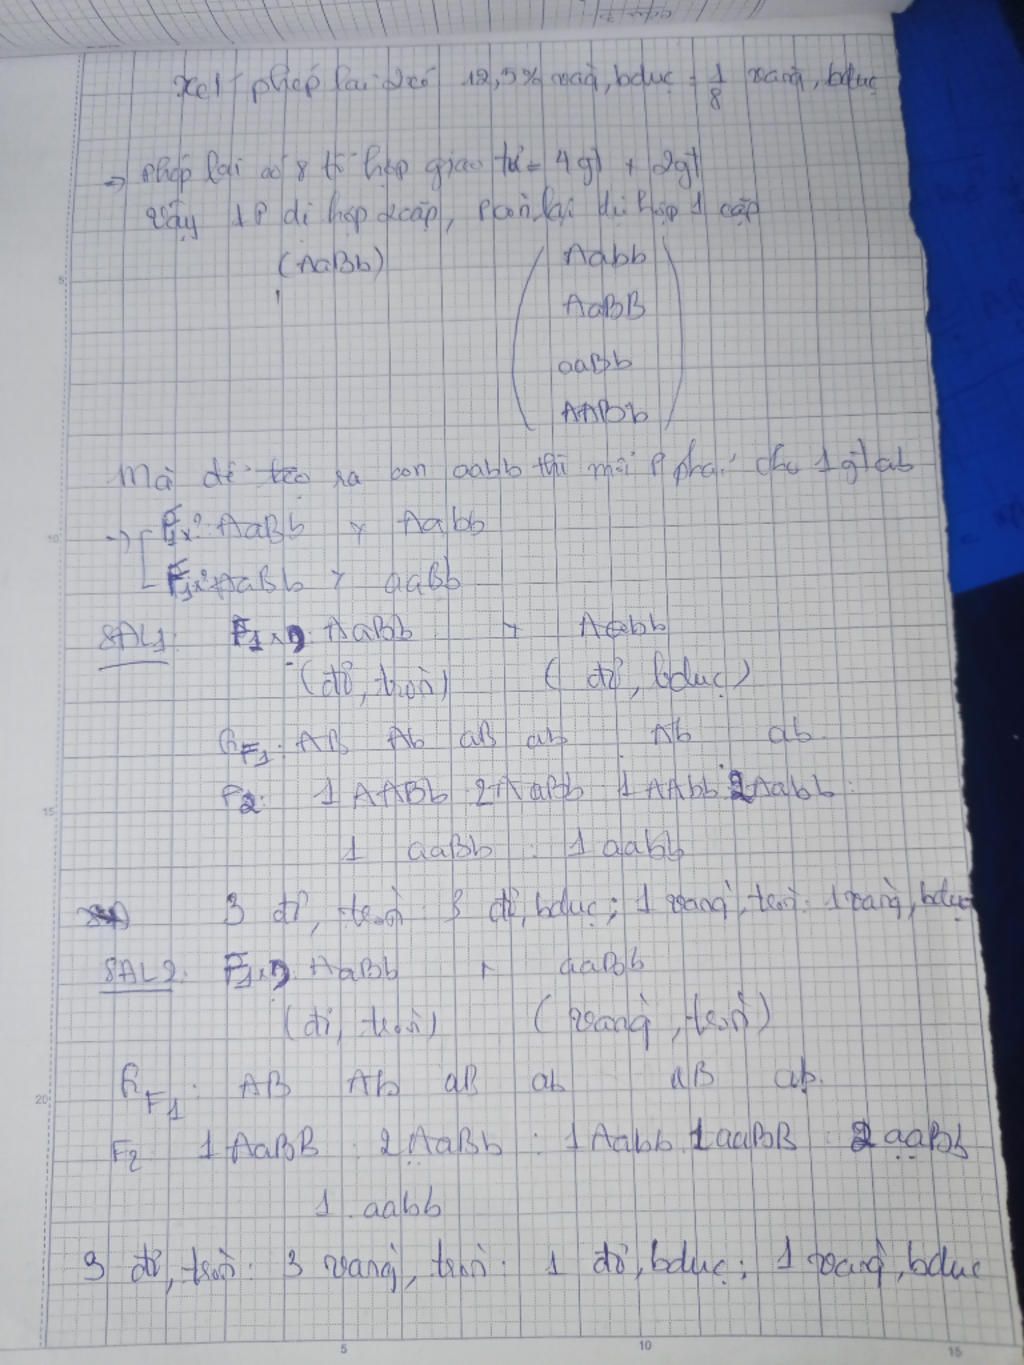 Xét phép lai 2 có 12,5% vàng, bdục = 1/8 vàng, bdục
→ phép lai có 8 tổ hợp giao tử = 4 gt x 2gt
Vậy 1 P dị hợp 2 cặp, P còn lại dị hợp 1 cặp
(AaBb) Aabb
AaBB
aaBb
AABb
Mà để tạo ra con aabb thì mỗi P phải cho 1 gt ab
→ F1x2: AaBb x Aabb
F1x2: AaBb x aaBb
SĐL1: F1x2: AaBb x Aabb
(đỏ, tròn) (đỏ, bdục)
GF1: AB Ab aB ab Ab ab
F2: 1 AABb 2AaBb 1AAbb 2Aabb
1 aaBb : 1 aabb
3 đỏ, tròn: 3 đỏ, bdục; 1 vàng, tròn: 1 vàng, bdục
SĐL2: F1x2: AaBb x aaBb
(đỏ, tròn) (vàng, tròn)
GF1: AB Ab aB ab aB ab
F2 1 AaBB : 2 AaBb : 1 Aabb 1 aaBB : 2 aaBb
1 aabb
3 đỏ, tròn: 3 vàng, tròn: 1 đỏ, bdục; 1 vàng, bdục
5
10
15
20
5
10
15